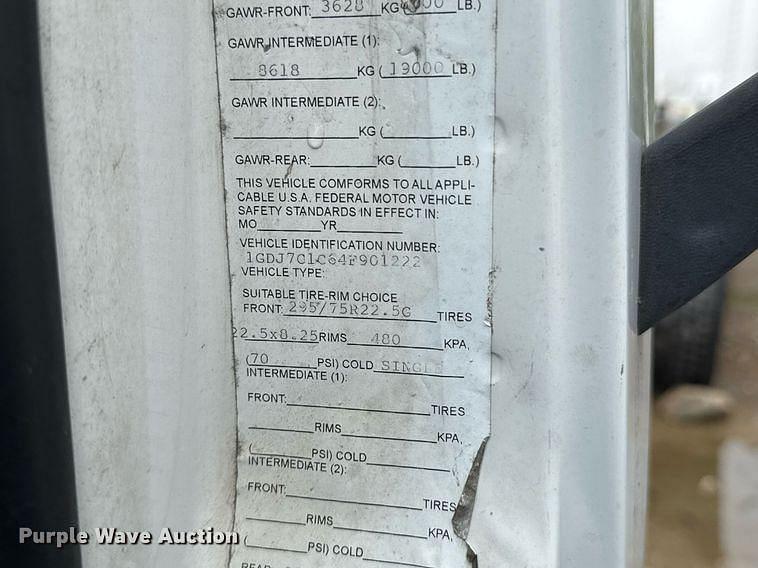 GAWR-FRONT: 3628 KG (8000 LB.)
GAWR INTERMEDIATE (1):
8618 KG (19000 LB.)
GAWR INTERMEDIATE (2):
KG ( LB.)
GAWR-REAR: KG ( LB.)
THIS VEHICLE COMFORMS TO ALL APPLI-
CABLE U.S.A. FEDERAL MOTOR VEHICLE
SAFETY STANDARDS IN EFFECT IN:
MO YR
VEHICLE IDENTIFICATION NUMBER:
1GDJ7C1C64F901222
VEHICLE TYPE:
SUITABLE TIRE-RIM CHOICE
FRONT: 295/75R22.5G TIRES
22.5x8.25 RIMS 480 KPA,
(70 PSI) COLD SINGLE
INTERMEDIATE (1):
FRONT: TIRES
RIMS KPA,
( PSI) COLD
INTERMEDIATE (2):
FRONT: TIRES
RIMS KPA,
( PSI) COLD
Purple Wave Auction